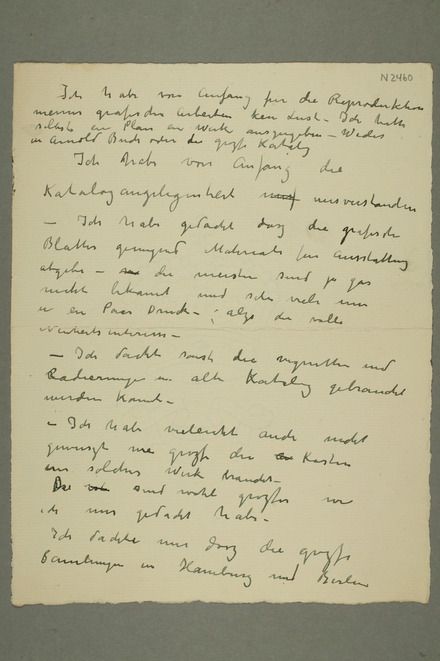 N2460
Ich habe von Anfang für die Reproduktion
meiner grafischen Arbeiten kein Lust – Ich hatte
selbste ein Plan ein Werk auszugeben – Weder
in Arnold Buch oder die grosse Katalog
Ich habe von Anfang die
Katalog angelegenheit misverstanden
– Ich habe gedacht dasz die grafische
Blätter genugend Materiale für Ausstattung
abgebe – die meisten sind ja gar
nicht bekannt und sehr viele nur
in ein Paar Druck – ; also die volle
Neuheitsinteresse –
– Ich dachte sonst die vignetten und
Radierungen in alte Katalog gebraucht
werden könnt –
– Ich habe vieleicht auch nicht
gewuszt wie grosse die Kosten
ein solches Werk brauchte –
Die sind wohl groszer wie
ich mir gedacht habe –
Ich dachte mir dasz die grosze
Samlungen in Hamburg und Berlin